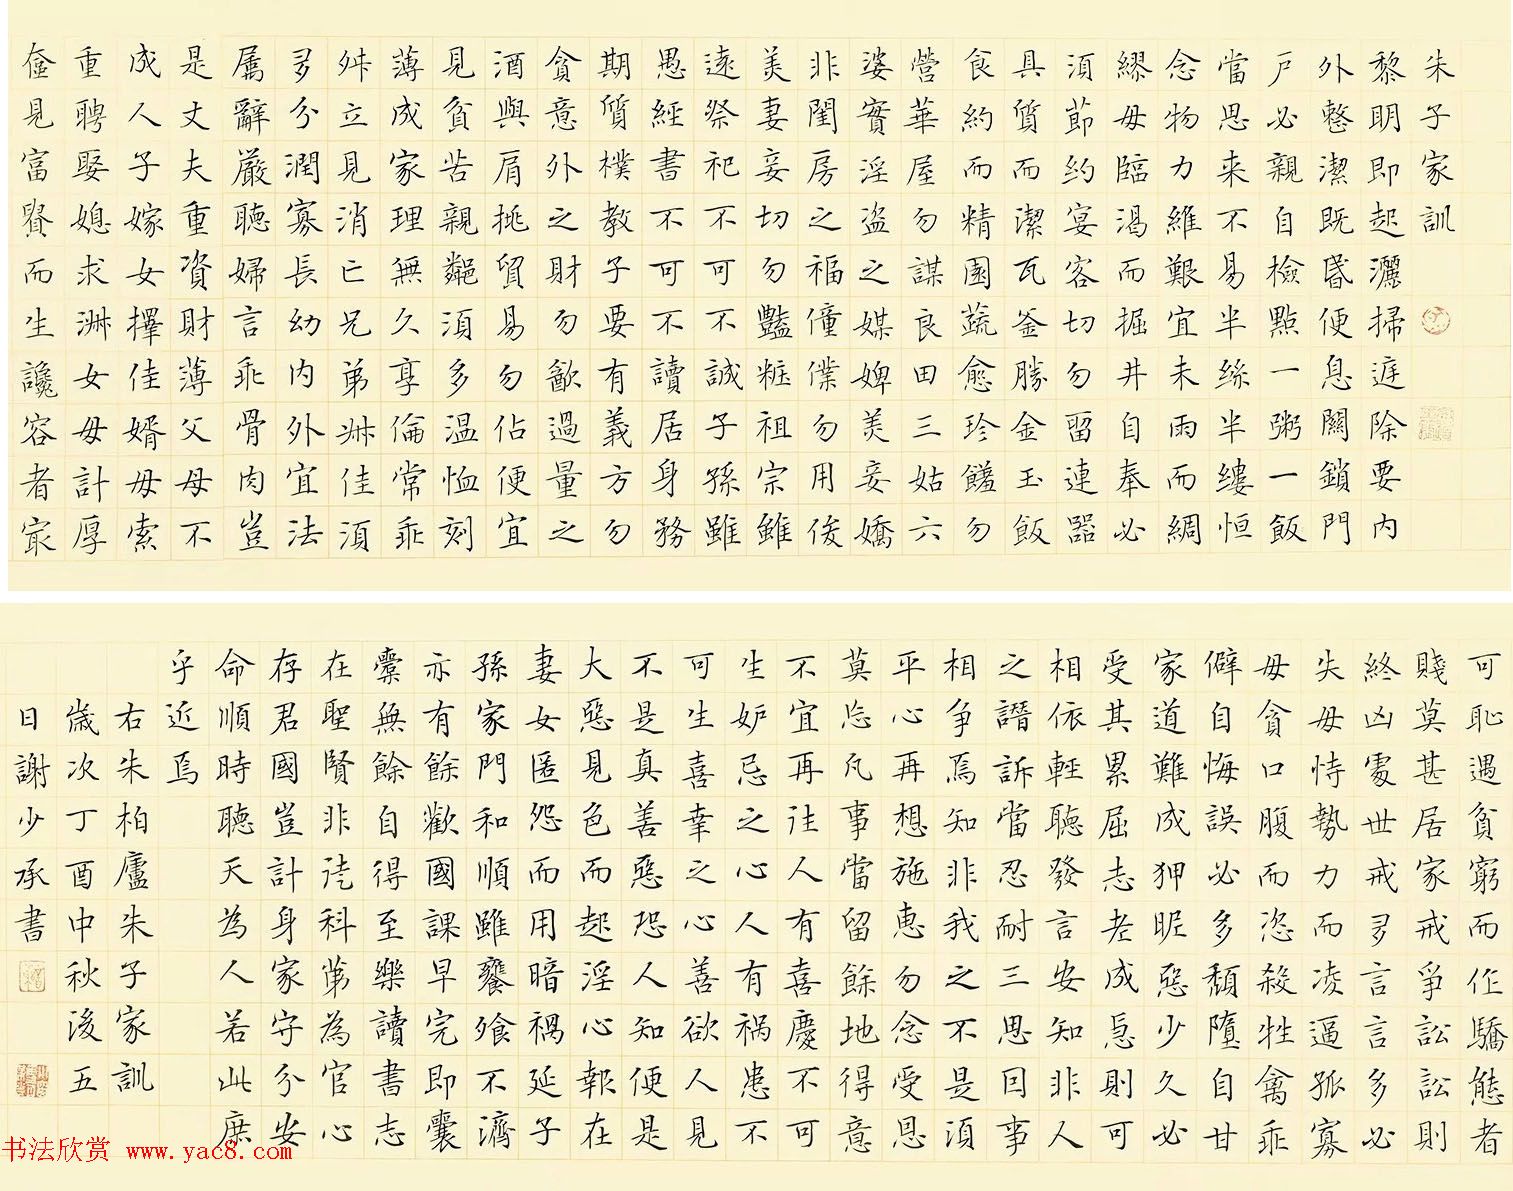 朱子家訓
黎明即起灑掃庭除要内
外整潔既昏便息關鎖門
戶必親自檢點一粥一飯
當思来不易半絲半縷恒
念物力維艱宜未雨而綢
繆毋臨渴而掘井自奉必
須節約宴客切勿留連器
具質而潔瓦釜勝金玉飯
食約而精園蔬愈珍饈勿
營華屋勿謀良田三姑六
婆實淫盗之媒婢美妾嬌
非閨房之福僮僕勿用俊
美妻妾切勿豔粧祖宗雖
遠祭祀不可不誠子孫雖
愚經書不可不讀居身務
期質樸教子要有義方勿
貪意外之財勿飲過量之
酒與肩挑貿易勿佔便宜
見貧苦親鄰須多温恤刻
薄成家理無久享倫常乖
舛立見消亡兄弟叔侄須
多分潤寡長幼内外宜法
屬辭嚴聽婦言乖骨肉豈
是丈夫重資財薄父母不
成人子嫁女擇佳婿毋索
重聘娶媳求淑女毋計厚
奩見富貴而生讒容者最
可恥遇貧窮而作驕態者
賤莫甚居家戒爭訟訟則
終凶處世戒多言言多必
失毋恃勢力而凌逼孤寡
毋貪口腹而恣殺牲禽乖
僻自悔誤必多頹墮自甘
家道難成狎昵惡少久必
受其累屈志老成急則可
相依輕聽發言安知非人
之譖訴當忍耐三思因事
相争焉知非我之不是須
平心再想施惠勿念受恩
莫忘凡事當留餘地得意
不宜再往人有喜慶不可
生妒忌之心人有禍患不
可生喜幸之心善欲人見
不是真善惡恐人知便是
大惡見色而起淫心報在
妻女匿怨而用暗禍延子
孫家門和順雖饔飧不濟
亦有餘歡國課早完即囊
橐無餘自得至樂讀書志
在聖賢非徒科第為官心
存君國豈計身家守分安
命順時聽天為人若此庶
乎近焉
右朱柏廬朱子家訓
歲次丁酉中秋後五
日謝少承書
书法欣赏 www.yac8.com